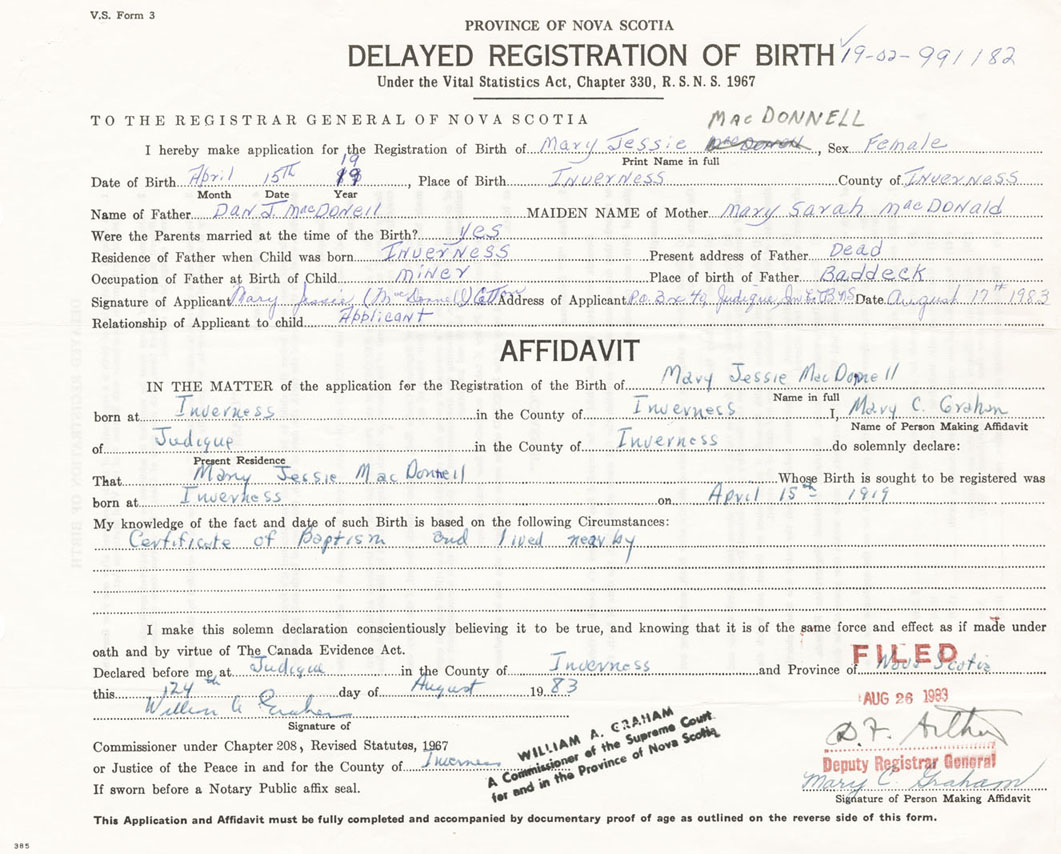 V.S. Form 3
PROVINCE OF NOVA SCOTIA
DELAYED REGISTRATION OF BIRTH 19-02-991182
Under the Vital Statistics Act, Chapter 330, R. S. N. S. 1967
TO THE REGISTRAR GENERAL OF NOVA SCOTIA MACDONNELL
I hereby make application for the Registration of Birth of Mary Jessie , Sex Female
Print Name in full
19
Date of Birth April 15th 19, Place of Birth INVERNESS County of INVERNESS
Month Date Year
Name of Father Dan J. MacDonell MAIDEN NAME of Mother Mary Sarah MacDonald
Were the Parents married at the time of the Birth? yes
Residence of Father when Child was born INVERNESS Present address of Father Dead
Occupation of Father at Birth of Child miner Place of birth of Father Baddeck
Signature of Applicant Mary Jessie (MacDonnell) Address of Applicant P.O. Box 49 Judique, Date August 17th 1983
Relationship of Applicant to child Applicant
AFFIDAVIT
IN THE MATTER of the application for the Registration of the Birth of Mary Jessie MacDonnell
Name in full
born at Inverness in the County of Inverness I, Mary C. Graham
Name of Person Making Affidavit
of Judique in the County of Inverness do solemnly declare:
Present Residence
That Mary Jessie MacDonnell Whose Birth is sought to be registered was
born at Inverness on April 15th 1919
My knowledge of the fact and date of such Birth is based on the following Circumstances:
Certificate of Baptism and lived near by
I make this solemn declaration conscientiously believing it to be true, and knowing that it is of the same force and effect as if made under
oath and by virtue of The Canada Evidence Act.
FILED
Declared before me at Judique in the County of Inverness and Province of Nova Scotia
this day of August 19 83
AUG 26 1983
William A Graham
Signature of
WILLIAM A. GRAHAM
A Commissioner of the Supreme Court
for and in the Province of Nova Scotia
Commissioner under Chapter 208, Revised Statutes, 1967
or Justice of the Peace in and for the County of Inverness
Deputy Registrar General
Mary C. Graham
If sworn before a Notary Public affix seal.
Signature of Person Making Affidavit
This Application and Affidavit must be fully completed and accompanied by documentary proof of age as outlined on the reverse side of this form.
385